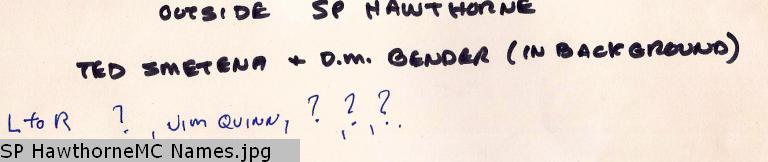 OUTSIDE SP HAWTHORNE
TED SMETENA + D.M. BENDER (IN BACKGROUND)
L to R ?, Jim QUINN, ? ?, ?.
SP HawthorneMC Names.jpg